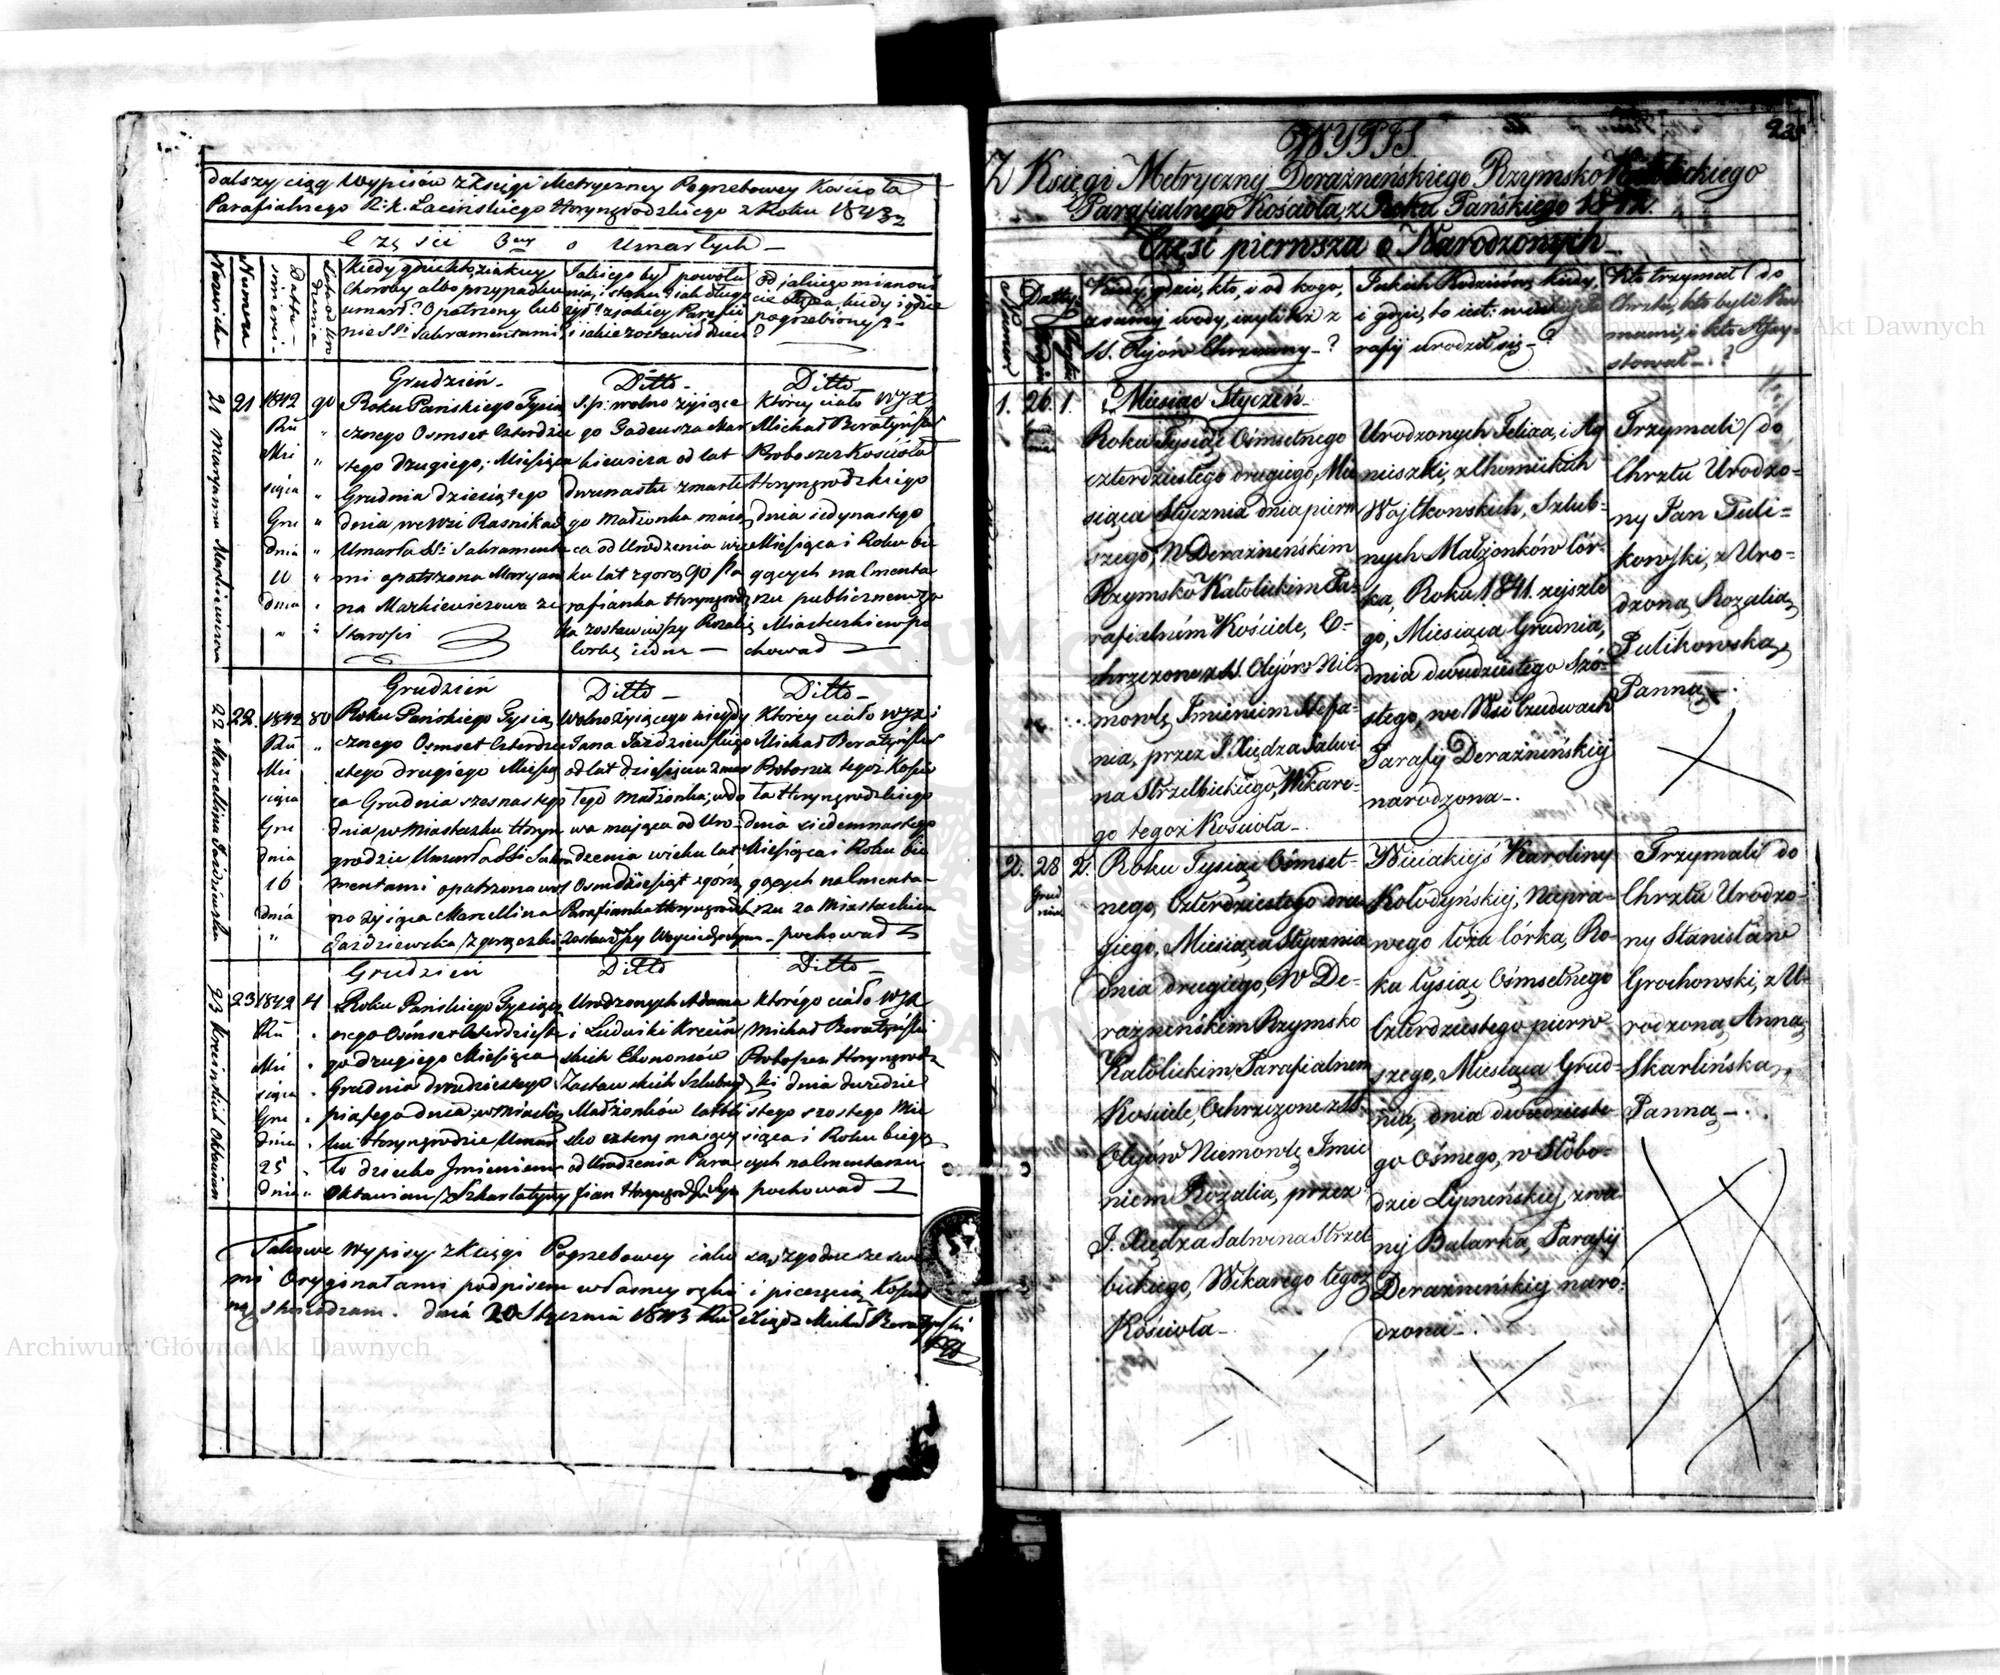 dalszy ciąg Wypisów z Księgi Metryczney Pogrzebowey Kościoła
Parafialnego R: k. Łacińskiego Horyngrodzkiego z Roku 1843
Części 3ey o Umarłych
Nazwisko
Numera
Datta śmierci
Kiedy, gdzie, kto, z iakiey
choroby albo przypadku
umarł? Opatrzony lub
nie SS. Sakramentami
Jakiego był powoła
nia, i stanu? iak długo
żył? z iakiey Parafii
i iakie zostawił dzieci
pogrzebiony?
21 Maryanna Markiewiczowa
21
1842
Ru
Mie
siąca
Gru
dnia
10
dnia
90
Grudzień
Roku Pańskiego Tysią
cznego Osmset Czterdzie
stego drugiego, Miesiąca
Grudnia dziesiątego
dnia, we Wsi
Umarła SS: Sakramenta
mi opatrzona Maryan
na Markiewiczowa ze
Starości
Ditto
S. p. wolno żyjące
go Tadeusza Mar
kiewicza od lat
dwunastu zmarłe
go Małżonka maią
ca od Urodzenia wie
ku lat zgorą 90 Pa
rafianka Horyngrodz
ka zostawiwszy
Corkę iedną
Ditto
ktorey ciało WJX
Michał Beratyński
Proboszcz Kościoła
Horyngrodzkiego
dnia iedynastego
Miesiąca i Roku bie
gących na Cmenta
rzu publicznem
Miasteczkiem po
chował
22 Marcellina Jaździewska
22.
1842
Ru
Mie
siąca
Gru
dnia
16
dnia
80
Grudzień
Roku Pańskiego Tysią
cznego Osmset Czterdzie
stego drugiego Miesią
ca Grudnia szesnastego
dnia, w Miasteczku Horyn
grodzie Umarła SS: Sakra
mentami opatrzona wol
no żyjąca Marcellina
Jaździewska, z gorączki
Ditto
Wolno Żyiącego niegdy
Jana Jaździewskiego
od lat dziesięciu zmar
łego Małżonka; wdo
wa maiąca od Uro
dzenia wieku lat
Osmdziesiąt zgorą
Parafianka Horyngrodz
Ditto
Ktorey ciało WJX
Michał Beratyński
Proboszcz tegoż Kościo
ła Horyngrodzkiego
dnia siedemnastego
Miesiąca i Roku bie
gących na Cmenta
rzu za Miasteczkiem
pochował
23
23
1842
Ru
Mie
siąca
Gru
dnia
25
dnia
4
Grudzień
Roku Pańskiego Tysiącz
nego Osmset Czterdzieste
go drugiego Miesiąca
Grudnia dwudziestego
piątego dnia, w Miastecz
ku Horyngrodzie Umar
ło dziecko Imieniem
Oktawian, z Szkarlatyny
Ditto
Urodzonych Adama
i Ludwiki
skich Ekonomów
Małżonków
sko cztery maiący
od Urodzenia Para
fian
Ditto
którego ciało WJX
Michał Beratyński
Proboszcz Horyngrodz
ki dnia dwudzie
stego szostego Mie
siąca i Roku bieg
cych na Cmentarzu
pochował
Takowe Wypisy z Księgi Pogrzebowey iako są zgodne ze swe
mi Oryginałami podpisem własney ręki i pieczęcią Kościel
ną stwierdzam. dnia 20 Stycznia 1843 Ru Xiądz Michał Beratyński
WYPIS
Z Księgi Metrycznej Derażneńskiego Rzymsko Katolickiego
Parafialnego Kościoła, z Roku Pańskiego 1842.
Część pierwsza o Narodzonych
Numer
Datty
Kiedy, gdzie, kto, i od kogo,
z samej wody, czyli też z
SS. Olejów Chrzczony?
Jakich Rodziców, kiedy,
i gdzie, to iest: w iakiej Pa
rafij urodził się?
Kto trzymał do
Chrztu, kto byli Ku
mami, i kto Assy
stował?
1.
26.
Grud
nia
1.
Miesiąc Styczeń
Roku Tysiąc Ośmsetnego
czterdziestego drugiego, Mie
siąca Stycznia dnia pierw
szego, W Derażneńskim
Rzymsko Katolickim Pa
rafialnim Kościele, O-
chrzczone z SS. Olejów Nie
mowlę Imieniem Stefa-
nia, przez J. Xiędza Salwi-
na Strzelbickiego, Wikare-
go tegoż Kościoła
Urodzonych Felixa, i Ag
nieszki, z Chomickich
Wojtkowskich, Szlub-
nych Małżonków Cór-
ka, Roku 1841. zeszłe
go, Miesiąca Grudnia,
dnia dwudziestego Szó-
stego, we Wsi Czudwach
Parafij Derażneńskiej
narodzona
Trzymali do
Chrztu Urodzo-
ny Jan Puli-
kowski, z Uro-
dzoną Rozalią
Pulikowską,
Panną
2.
28
Grud
nia
2.
Roku Tysiąc Ośmset-
nego, Czterdziestego dru
giego, Miesiąca Stycznia
dnia drugiego, W De-
rażneńskim Rzymsko
Katolickim, Parafialnem
Kościele, Ochrzczone z SS.
Olejów Niemowlę Imie
niem Rozalia, przez
J. Xiędza Salwina Strzel
bickiego, Wikarego tegoż
Kościoła
Wieiakiejś Karoliny
Kołodyńskiej, Niepra-
wego łoża Córka, Ro-
ku tysiąc Ośmsetnego
Czterdziestego pierw-
szego, Miesiąca Grud-
nia, dnia dwudzieste-
go Ośmego, w Słobo-
dzie Lipneńskiej, zwa
nej Balarka, Parafij
Derażneńskiej naro-
dzona
Trzymali do
Chrztu Urodzo-
ny Stanisław
Grochowski, z U-
rodzoną Anną
Skarlińską,
Panną
Archiwum Główne Akt Dawnych
Archiwum Główne Akt Dawnych